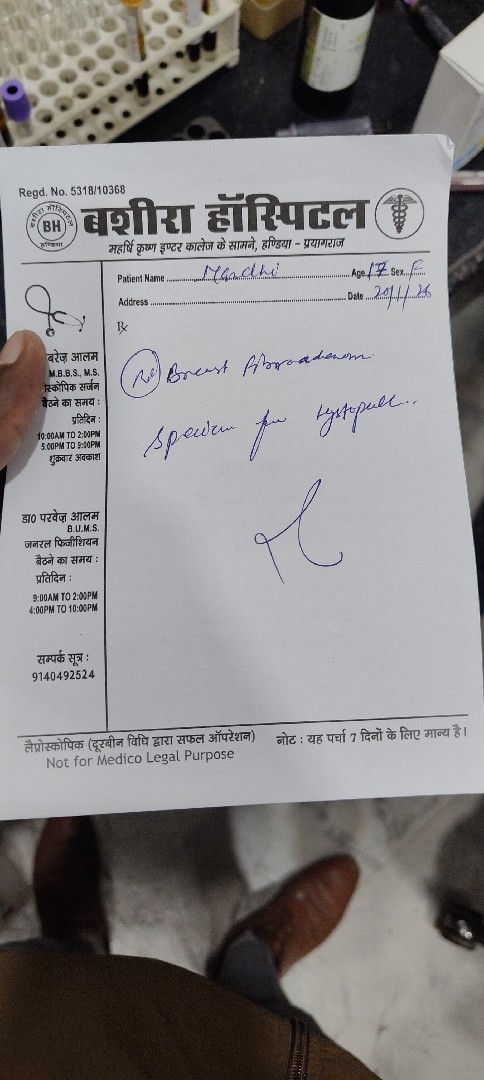 Regd. No. 5318/10368
BH
हण्डिया
बशीरा हॉस्पिटल
महर्षि कृष्ण इण्टर कालेज के सामने, हण्डिया - प्रयागराज
Patient Name Age 17 Sex F
Address Date
Rx
Breast fibroadenom
specimen for
बरेज़ आलम
M.B.B.S., M.S.
स्कोपिक सर्जन
बैठने का समय :
प्रतिदिन :
10:00AM TO 2:00PM
5:00PM TO 9:00PM
शुक्रवार अवकाश
डा0 परवेज़ आलम
B.U.M.S.
जनरल फिजीशियन
बैठने का समय :
प्रतिदिन :
9:00AM TO 2:00PM
4:00PM TO 10:00PM
सम्पर्क सूत्र :
9140492524
लैप्रोस्कोपिक (दूरबीन विधि द्वारा सफल ऑपरेशन) नोट : यह पर्चा 7 दिनों के लिए मान्य है।
Not for Medico Legal Purpose